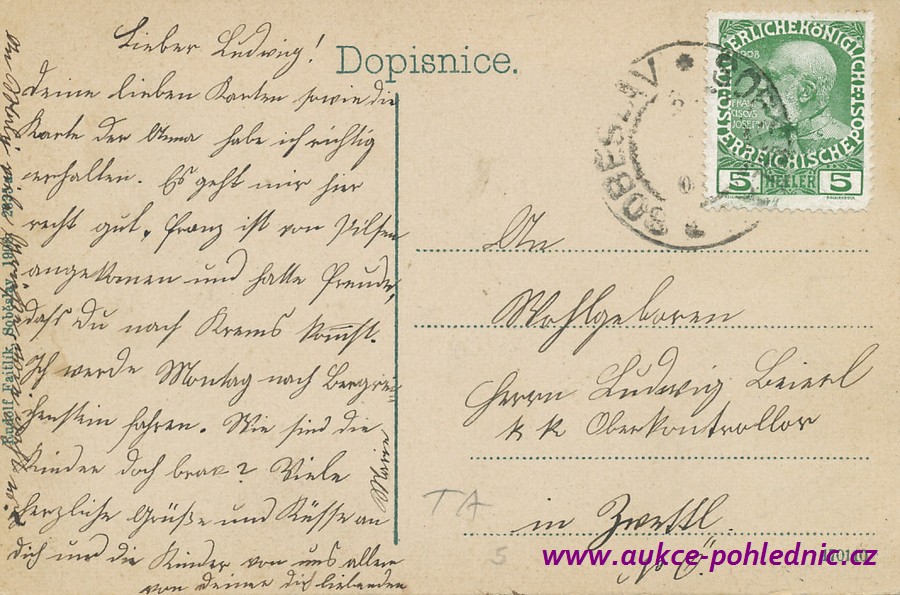 Dopisnice.
Lieber Ludwig!
Deine lieben Karten sowie die
Karte der Anna habe ich richtig
erhalten. Es geht mir hier
recht gut. Franz ist von Pilsen
angekomen und hatte Freude,
dass Du nach Krems kommst.
Ich werde Montag nach Bergrei-
chenstein fahren. Wie sind die
Kinder doch brav? Viele
herzliche Grüße und Küsse an
dich und die Kinder von uns allen
von deiner dich liebenden
Marie
Rudolf Faitlík, Soběslav, 1908.
SOBĚSLAV
OESTERREICHISCHE POST
KAISERLICHE KÖNIGLICHE
1908
FRAN
CISCVS
JOSEPH I
5 HELLER 5
An
Wohlgeboren
Herrn Ludwig Beierl
k k Oberkontrollor
in Zwettl.
N. Ö.
TA
5
www.aukce-pohlednic.cz